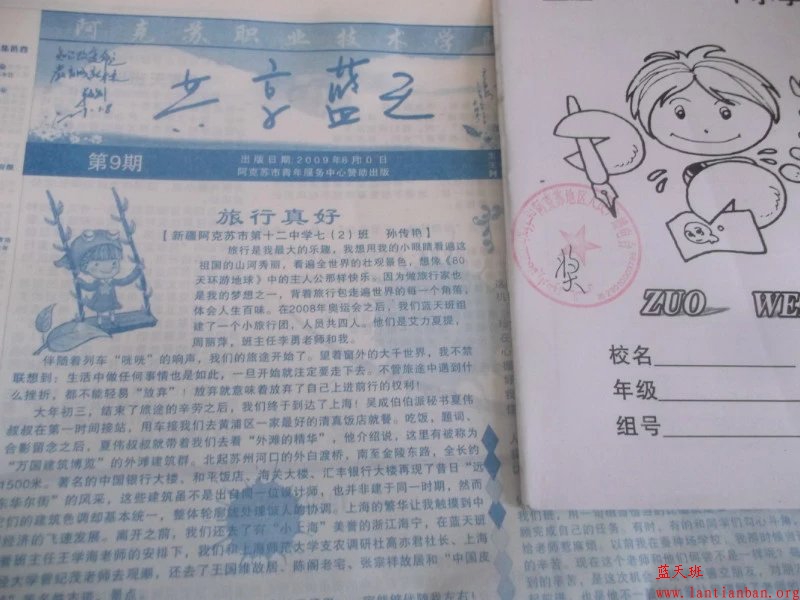 阿克苏职业技术学
共享蓝天
第9期
出版日期:2009年6月10日
阿克苏市青年服务中心赞助出版
旅行真好
【新疆阿克苏市第十二中学七(2)班 孙传艳】
旅行是我最大的乐趣,我想用我的小眼睛看遍这
祖国的山河秀丽,看遍全世界的壮观景色,想像《80
天环游地球》中的主人公那样快乐。因为做旅行家也
是我的梦想之一,背着旅行包走遍世界的每一个角落,
体会人生百味。在2008年奥运会之后,我们蓝天班组
建了一个小旅行团,人员共四人。他们是艾力夏提,
周丽萍,班主任李勇老师和我。
伴随着列车“咣咣”的响声,我们的旅途开始了。望着窗外的大千世界,我不禁
联想到:生活中做任何事情也是如此,一旦开始就注定要走下去。不管旅途中遇到什
么挫折,都不能轻易“放弃”!放弃就意味着放弃了自己上进前行的权利!
大年初三,结束了旅途的辛劳之后,我们终于到达了上海!吴成伯伯派秘书夏伟
叔叔在第一时间接站,用车接我们去黄浦区一家最好的清真饭店就餐。吃饭,题词、
合影留念之后,夏伟叔叔就带着我们去看“外滩的精华”,他介绍说,这里有被称为
“万国建筑博览”的外滩建筑群。北起苏州河口的外白渡桥,南至金陵东路,全长约
1500米。著名的中国银行大楼、和平饭店、海关大楼、汇丰银行大楼再现了昔日“远
东华尔街”的风采,这些建筑虽不是出自同一位设计师,也并非建于同一时期,然而
它们的建筑色调却基本统一,整体轮廓线处理惊人的协调。上海的繁华让我触摸到中
经济的飞速发展。离开之前,我们还去了有“小上海”美誉的浙江海宁,在蓝天班
誉班主任王学海老师的安排下,我们和上海师范大学支农调研社高亦君社长、上海
经大学曾妃茂老师去观潮,还去了王国维故居、陈阁老宅、张宗祥故居和“中国皮
奖
ZUO WE
校名
年级
组号
能够伴随我左右!
顾完成自己的任务。有时,有的和同学们勾心斗角,
给老师惹麻烦。以前我在
的辛苦。现在这个老师和他们同学不是一
蓝天班
www.lantianban.org